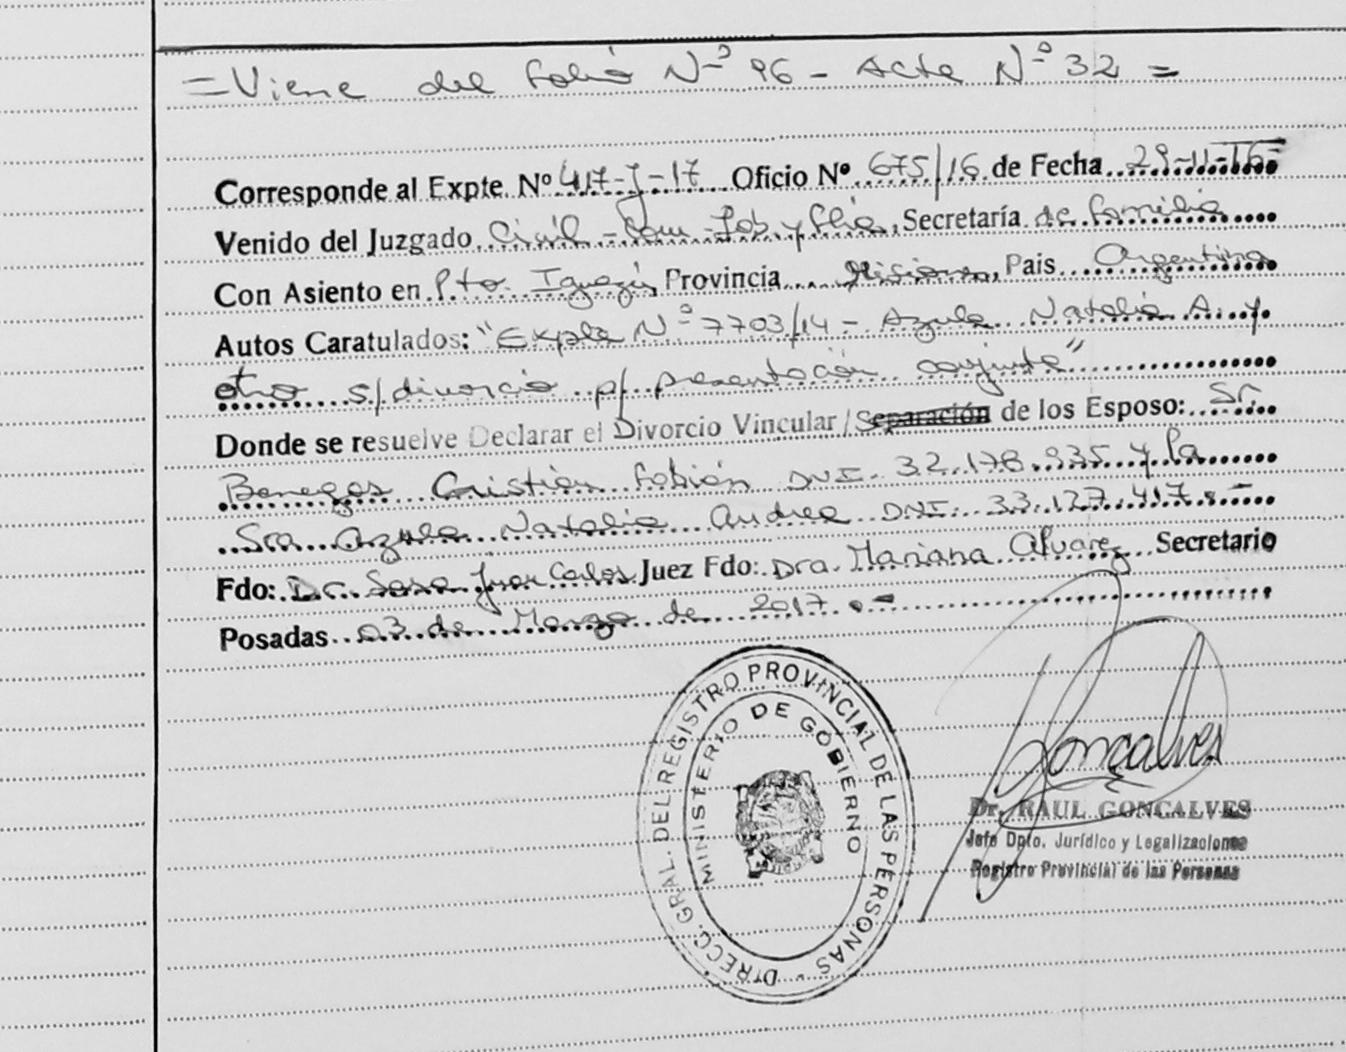 = Viene del folio Nº 96 - Acta Nº 32 =
Corresponde al Expte. Nº 417-J-17 Oficio Nº 675/16 de Fecha 29-11-16
Venido del Juzgado Civil - Com - Lab y flia, Secretaría de familia
Con Asiento en Pto. Iguazú, Provincia Misiones, Pais Argentina
Autos Caratulados: "Expte Nº 7703/14 - Azula Natalia A. y
otro s/divorcio p/ presentación conjunta"
Donde se resuelve Declarar el Divorcio Vincular / Separación de los Esposo: Sr.
Benegas Cristian Fabián DNI. 32.178.935 y la
Sra Azula Natalia Andrea DNI. 33.127.417.-
Fdo: Dr. Sosa Juan Carlos Juez Fdo: Dra. Mariana Alvarez Secretario
Posadas 03 de Marzo de 2017.-
DIRECC. GRAL. DEL REGISTRO PROVINCIAL DE LAS PERSONAS
MINISTERIO DE GOBIERNO
Gonçalves
Dr. RAUL GONCALVES
Jefe Dpto. Jurídico y Legalizaciones
Registro Provincial de las Personas